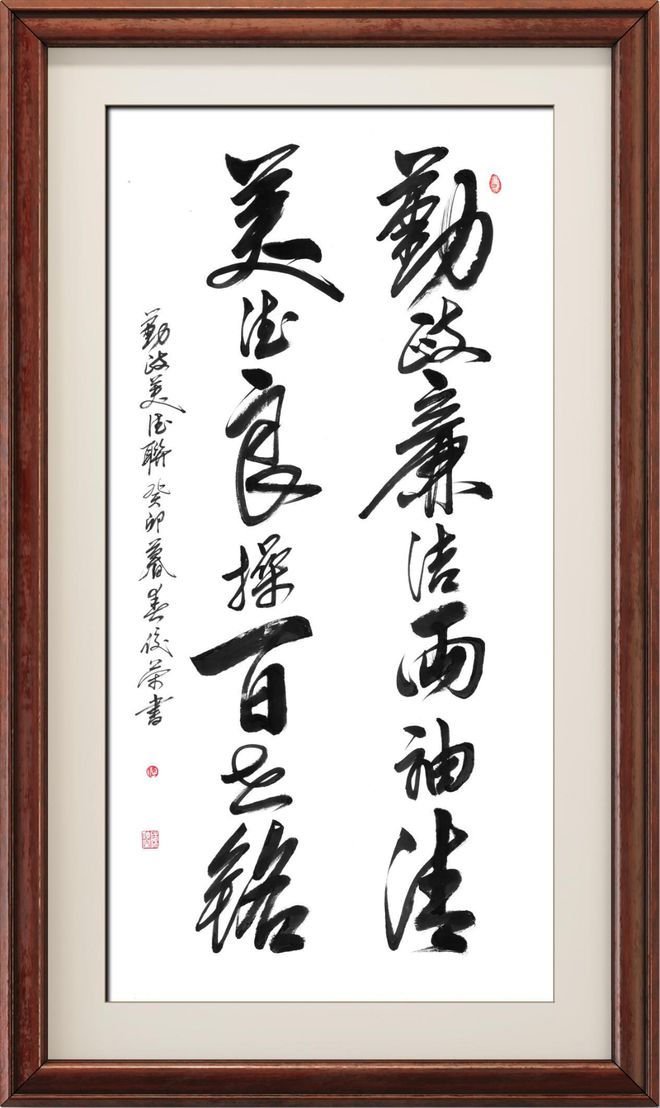 勤政廉洁两袖清
美德良操百世铭
勤政美德联癸卯暮春俊荣书